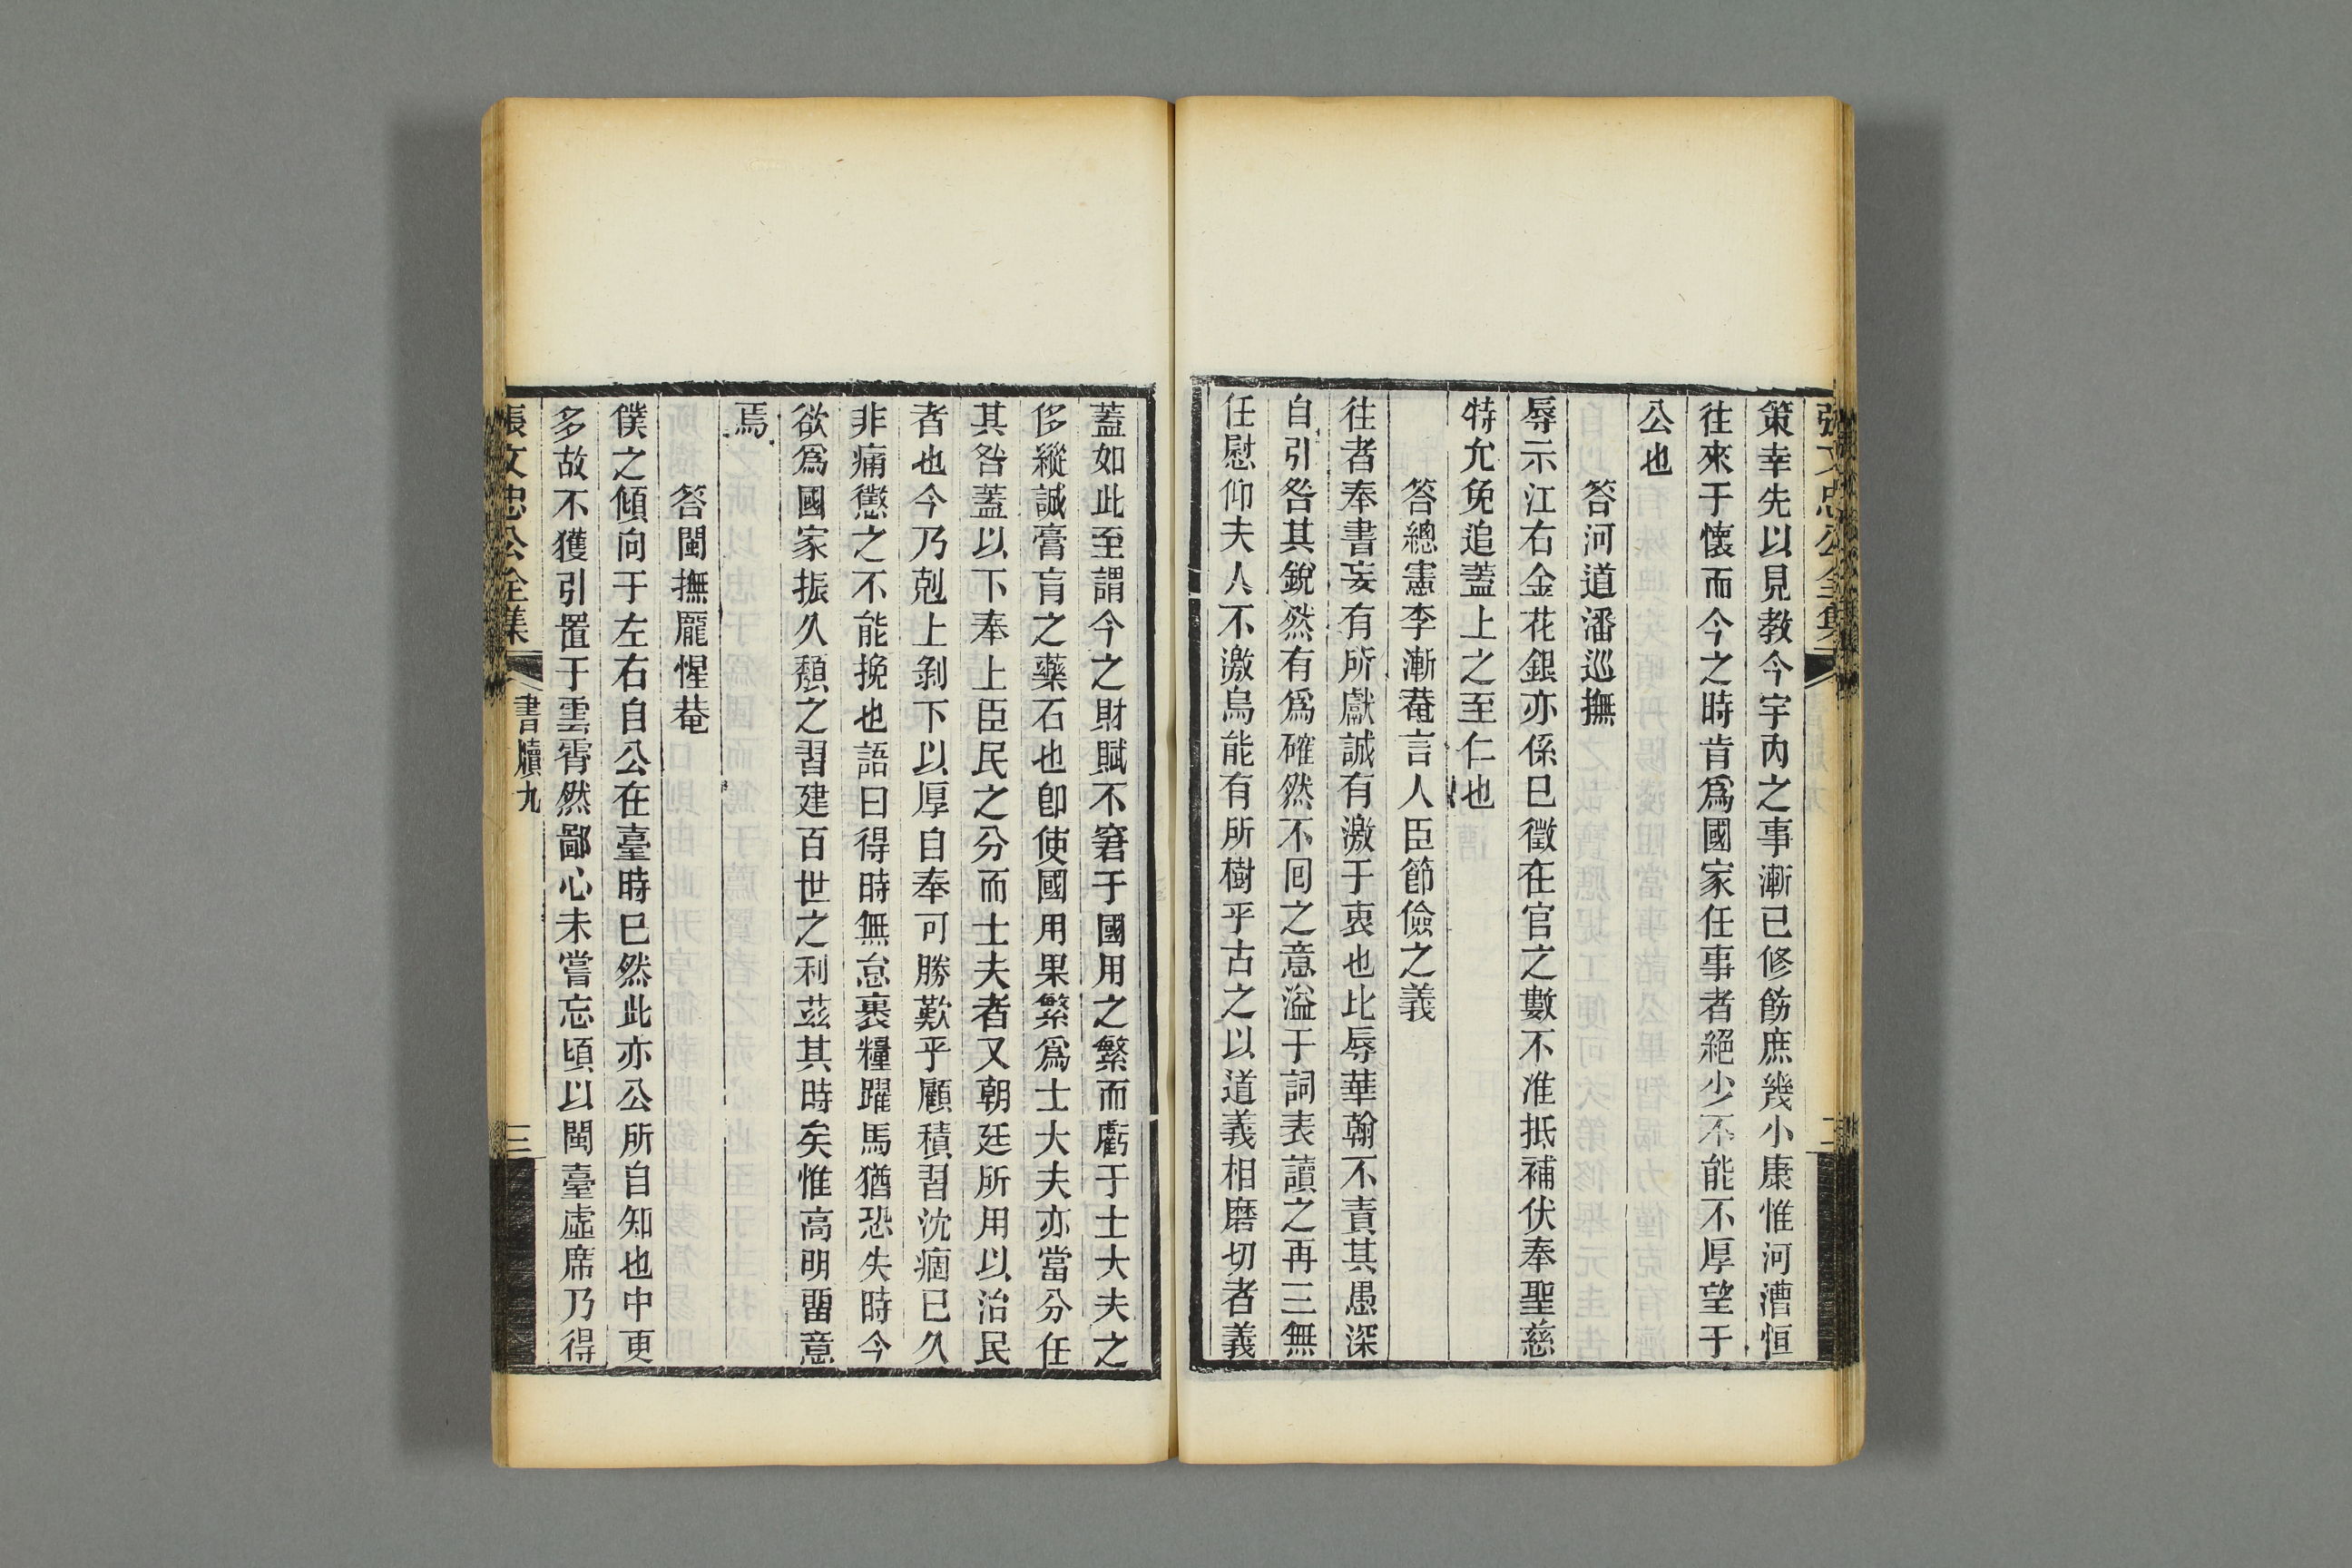 張文忠公全集
二
策幸先以見教今宇內之事漸已修飭庶幾小康惟河漕恒
往來于懷而今之時肯爲國家任事者絕少不能不厚望于
公也
答河道潘巡撫
辱示江右金花銀亦係巳徵在官之數不准抵補伏奉聖慈
特允免追蓋上之至仁也
答總憲李漸菴言人臣節儉之義
往者奉書妄有所獻誠有激于衷也比辱華翰不責其愚深
自引咎其銳然有爲確然不回之意溢于詞表讀之再三無
任慰仰夫人不激烏能有所樹乎古之以道義相磨切者義
蓋如此至謂今之財賦不窘于國用之繁而虧于士大夫之
侈縱誠膏肓之藥石也卽使國用果繁爲士大夫亦當分任
其咎蓋以下奉上臣民之分而士夫者又朝廷所用以治民
者也今乃剋上剝下以厚自奉可勝歎乎顧積習沈痼巳久
非痛懲之不能挽也語曰得時無怠裹糧躍馬猶恐失時今
欲爲國家振久頹之習建百世之利茲其時矣惟高明畱意
焉
答閩撫龐惺菴
僕之傾向于左右自公在臺時巳然此亦公所自知也中更
多故不獲引置于雲霄然鄙心未嘗忘頃以閩臺虛席乃得
張文忠公全集
書牘九
三